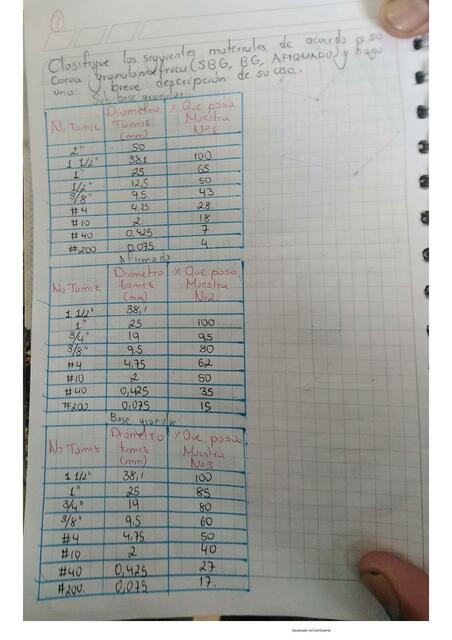 1
Clasifique los siguientes materiales de acuerdo a su
Curva granulométrica (SBG, BG, AFIRMADO) y haga
una breve descripción de su uso.
Sub-base granular
No Tamiz Diametro Tamiz (mm) % Que pasa Muestra No1
2" 50
1 1/2" 38,1 100
1" 25 65
1/2" 12,5 50
3/8" 9,5 43
#4 4,75 28
#10 2 18
#40 0,425 7
#200 0.075 4
Afirmado
No Tamiz Diametro tamiz (mm) % Que pasa Muestra No2
1 1/2" 38,1
1" 25 100
3/4" 19 95
3/8" 9.5 80
#4 4,75 62
#10 2 50
#40 0,425 35
#200 0,075 15
Base granular
No Tamiz Diametro tamiz (mm) % Que pasa Muestra No3
1 1/2" 38,1 100
1" 25 85
3/4" 19 80
3/8" 9,5 60
#4 4,75 50
#10 2 40
#40 0,425 27
#200. 0,075 17.
Escaneado con CamScanner